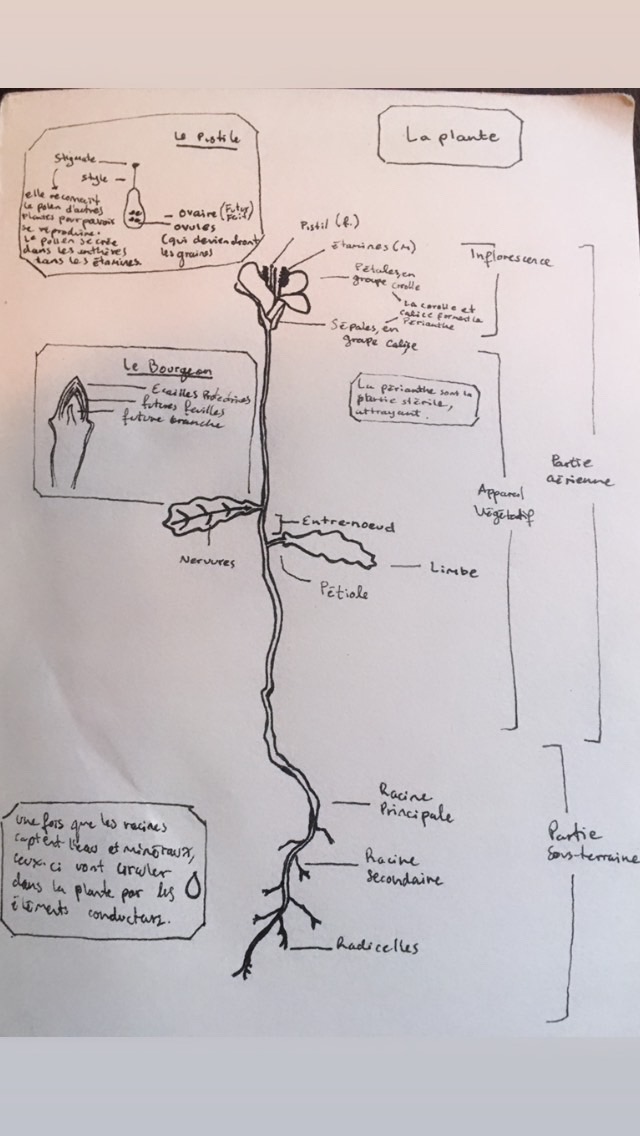 La plante
Le Pistile
Stigmate
style
elle reconnait
le polen d'autres
plantes pour pouvoir
se reproduire.
Le pollen se crée
dans les enthères
dans les étamines.
ovaire (Futur
Fruit)
ovules
(qui deviendront
les graines
Pistil (f.)
Étamines (M)
Pétales, en
groupe corolle
La corolle et
calice forment la
Périanthe
Sépales, en
groupe Calise
Inflorescence
Le Bourgeon
Ecailles Protectrices
futures feuilles
future branche
La périanthe sont la
partie stérile,
attrayant.
Partie
aérienne
Appareil
Végétatif
Entre-noeud
Nervures
Limbe
Pétiole
Racine
Principale
Une fois que les racines
captent l'eau et minéraux,
ceux-ci vont circuler
dans la plante par les
éléments conducteurs.
Partie
Sous-terraine
Racine
Secondaire
Radicelles